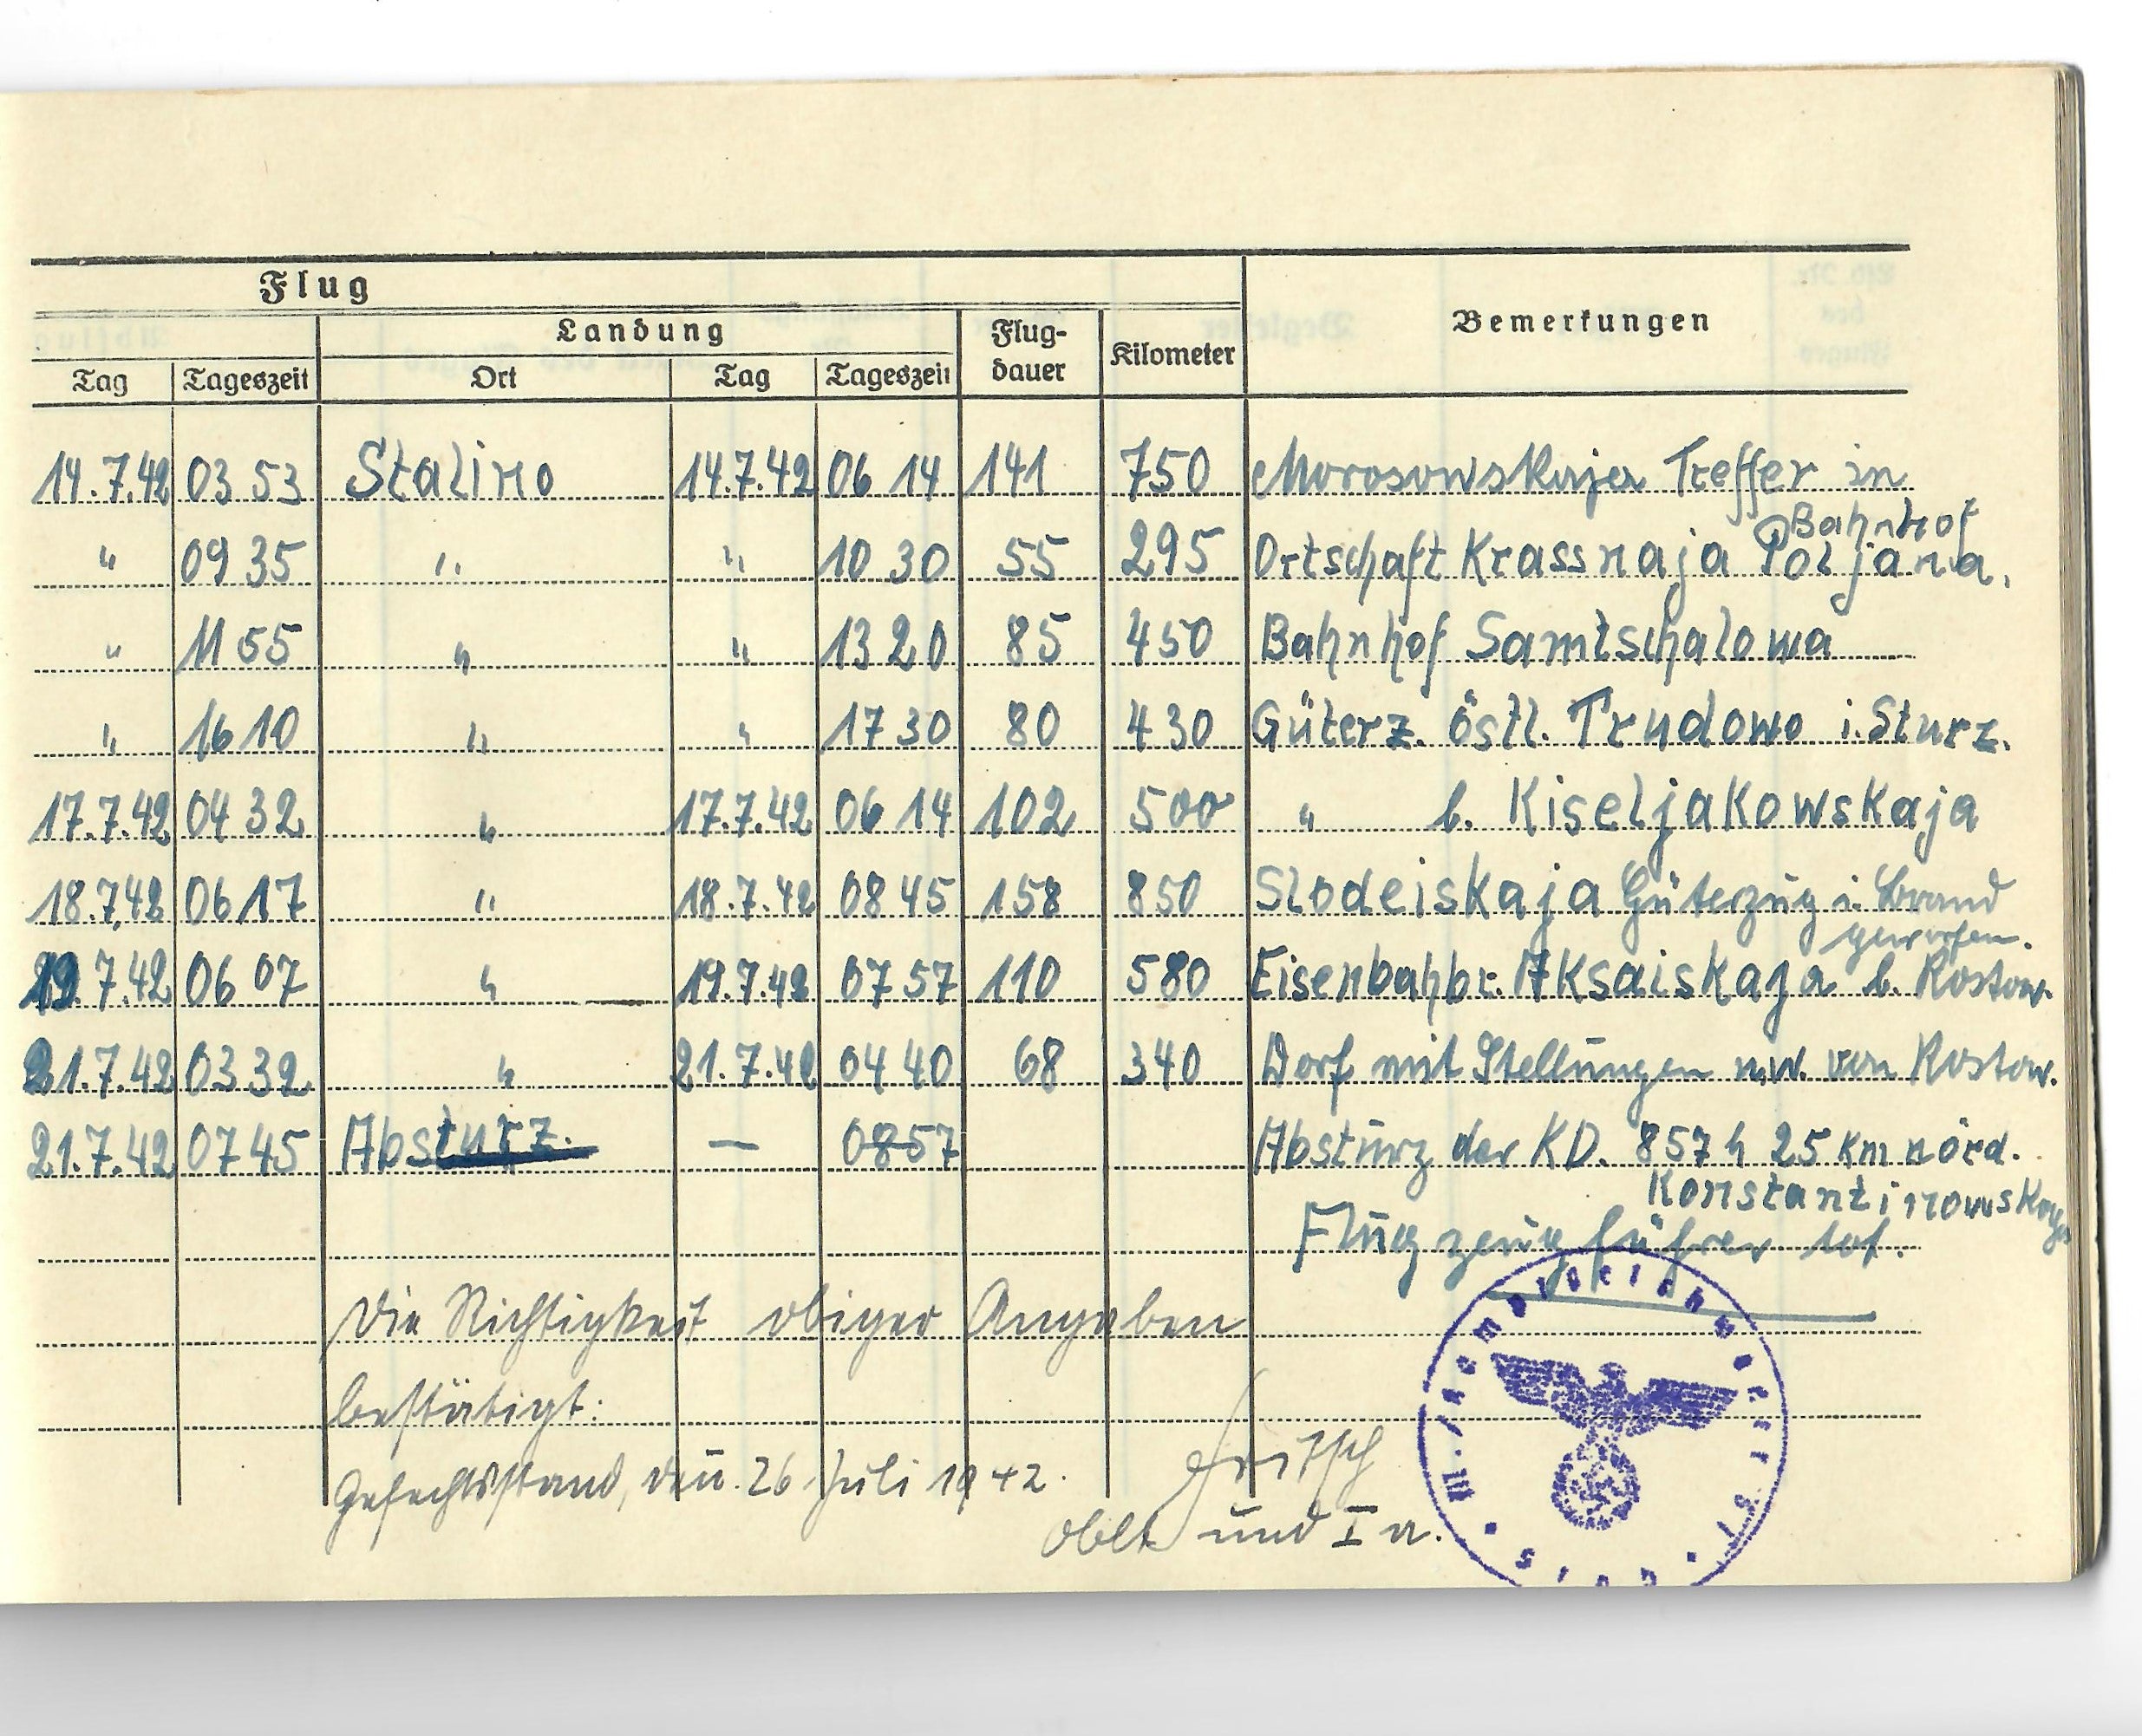 Flug
Landung
Flug-
dauer
Kilometer
Bemerkungen
Tag Tageszeit Ort Tag Tageszeit
14.7.42 03 53 Stalino 14.7.42 06 14 141 750 Morosowskaja Treffer in
Bahnhof
" 09 35 " " 10 30 55 295 Ortschaft Krassnaja Poljana.
" 11 55 " " 13 20 85 450 Bahnhof Samtschalowa
" 16 10 " " 17 30 80 430 Güterz. östl. Trudowo i. Sturz.
17.7.42 04 32 " 17.7.42 06 14 102 500 " b. Kiseljakowskaja
18.7.42 06 17 " 18.7.42 08 45 158 850 Slodeiskaja Güterzug i. Brand
geworfen.
19.7.42 06 07 " 19.7.42 07 57 110 580 Eisenbahbr. Aksaiskaja b. Rostow.
21.7.42 03 32 " 21.7.42 04 40 68 340 Dorf mit Stellungen n.w. von Rostow.
21.7.42 07 45 Absturz. — 0857 Absturz der KD. 857 h 25 km nörd.
Konstantinowskaja
Flugzeugführer tot.
Die Richtigkeit obiger Angaben
bestätigt:
Gefechtsstand, den 26. Juli 1942.
Fritsch
Oblt. und Ia.
III./Kampfgeschwader